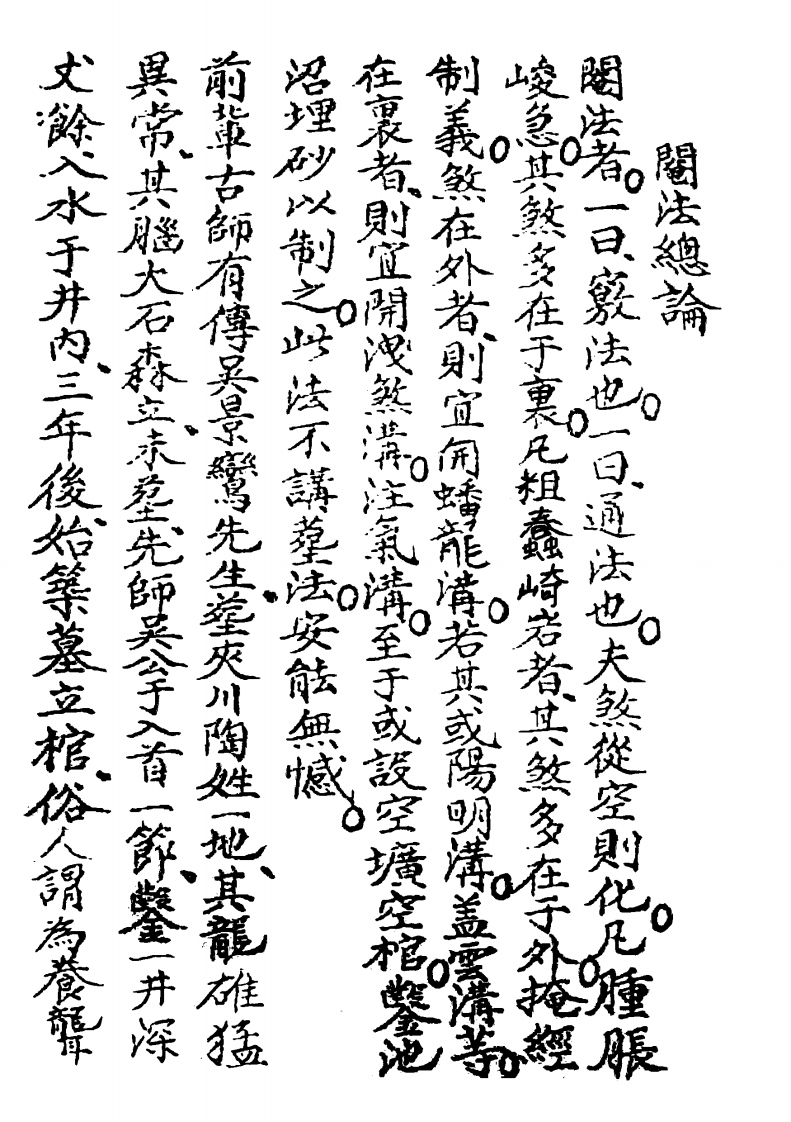 閹法總論
閹法者。一曰、竅法也。一曰、通法也。夫煞從空則化。凡腫脹
峻急。其煞多在于裏。凡粗蠢崎岩者、其煞多在于外。掩經
制義。煞在外者、則宜開蟠龍溝。若其或陽明溝。盖雲溝等。
在裏者、則宜開洩煞溝。注氣溝。至于或設空壙空棺。鑿池
沼埋砂以制之。此法不講塟法。安能無憾。
前輩古師有傳吳景鸞先生、塟夾川陶姓一地、其龍雄猛
異常、其腦大石森立、未塟、先師吳公于入首一節、鑿一井深
丈濂入水于井内、三年後、始築墓立棺、俗人謂為養龍耳